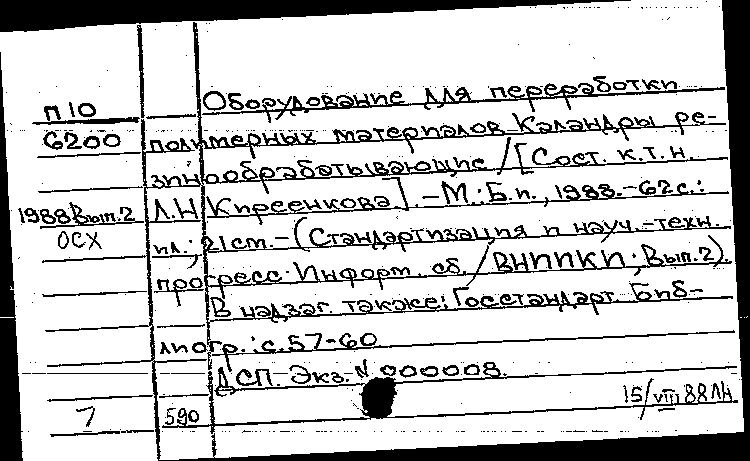 П10 Оборудование для переработки
6200 полимерных материалов Каландры ре-
зинообрабатывающие / [Сост. к.т.н.
1988 Вып.2 Л.Н Кирсенкова]. - М.: Б.и., 1988. - 62 с.:
ОСХ ил.; 21 ст. - (Стандартизация и науч.-техн.
прогресс. Информ. сб. / ВНИИКИ; Вып.2).
В надзаг. также: Госстандарт. Биб-
лиогр.: с. 57-60
ДСП. Экз. N 000008.
7 590 15/VIII 88 ЛН.